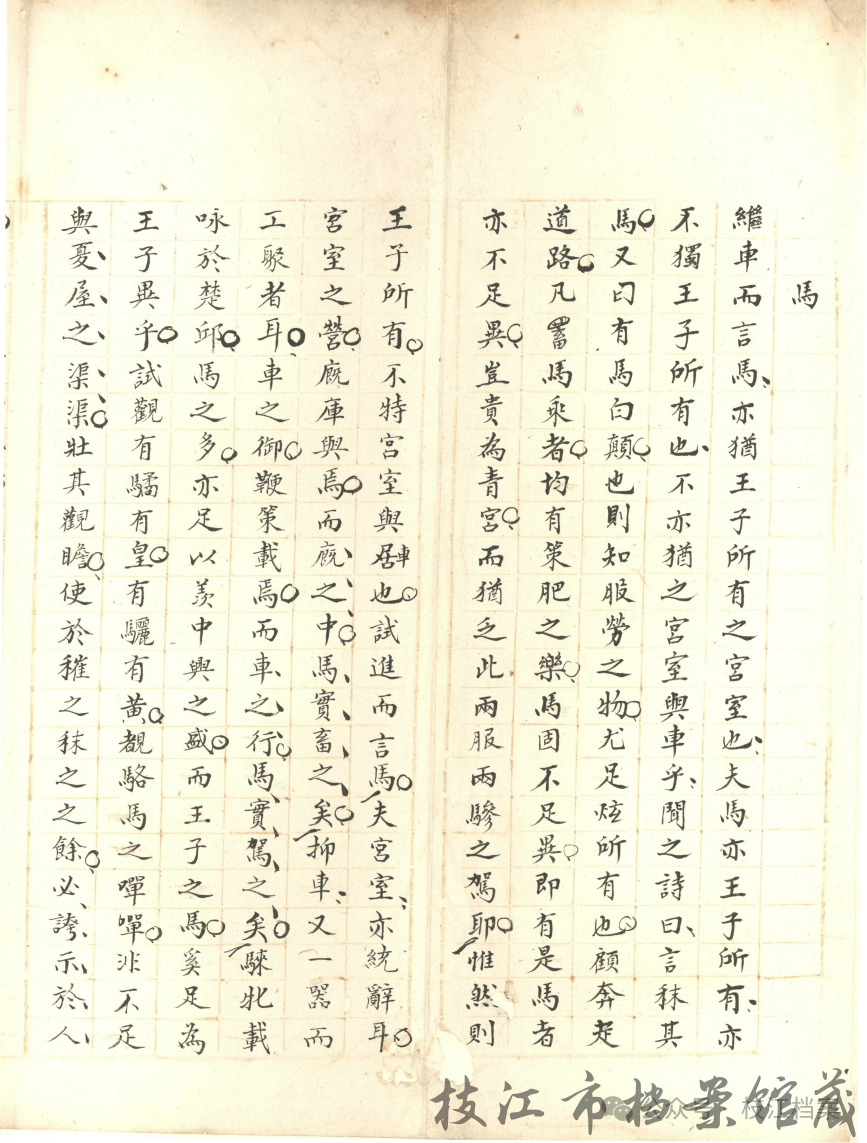 馬
繼車而言馬亦猶王子所有之宮室也夫馬亦王子所有亦
不獨王子所有也不亦猶之宮室與車乎聞之詩曰言秣其
馬又曰有馬白顛也則知服勞之物尤足炫所有也顧奔走
道路凡畜馬乘者均有策肥之樂馬固不足異即有是馬者
亦不足異豈貴為青宮而猶乏此兩服兩驂之駕耶惟然則
王子所有不特宮室與車也試進而言馬夫宮室亦統辭耳
宮室之營廐庫與焉而廐之中馬實畜之矣抑車又一器而
工聚者耳車之御鞭策載焉而車之行馬實駕之矣騋牝載
咏於楚邱馬之多亦足以羨中興之盛而王子之馬奚足為
王子異乎試觀有驈有皇有驪有黃覩駱馬之嘽嘽非不足
與夏屋之渠渠壯其觀瞻使於摧之秣之之餘必誇示於人
枝江市档案馆藏
公众号 枝江档案